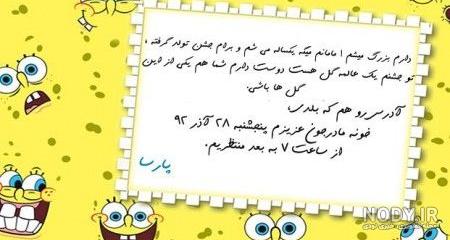 دارم بزرگ میشم ! مامانم میگه یکساله می شم و برام جشن تولد گرفته ,
تو جشنم یک عالمه گل هست دوست دارم شما هم یکی از این
گل ها باشی.
آدرس رو هم که بلدی
خونه مادرجوخ عزیزم پنجشنبه ۲۸ آذر ۹۲
از ساعت ۷ به بعد منتظریم.
پارسا
NODY.IR